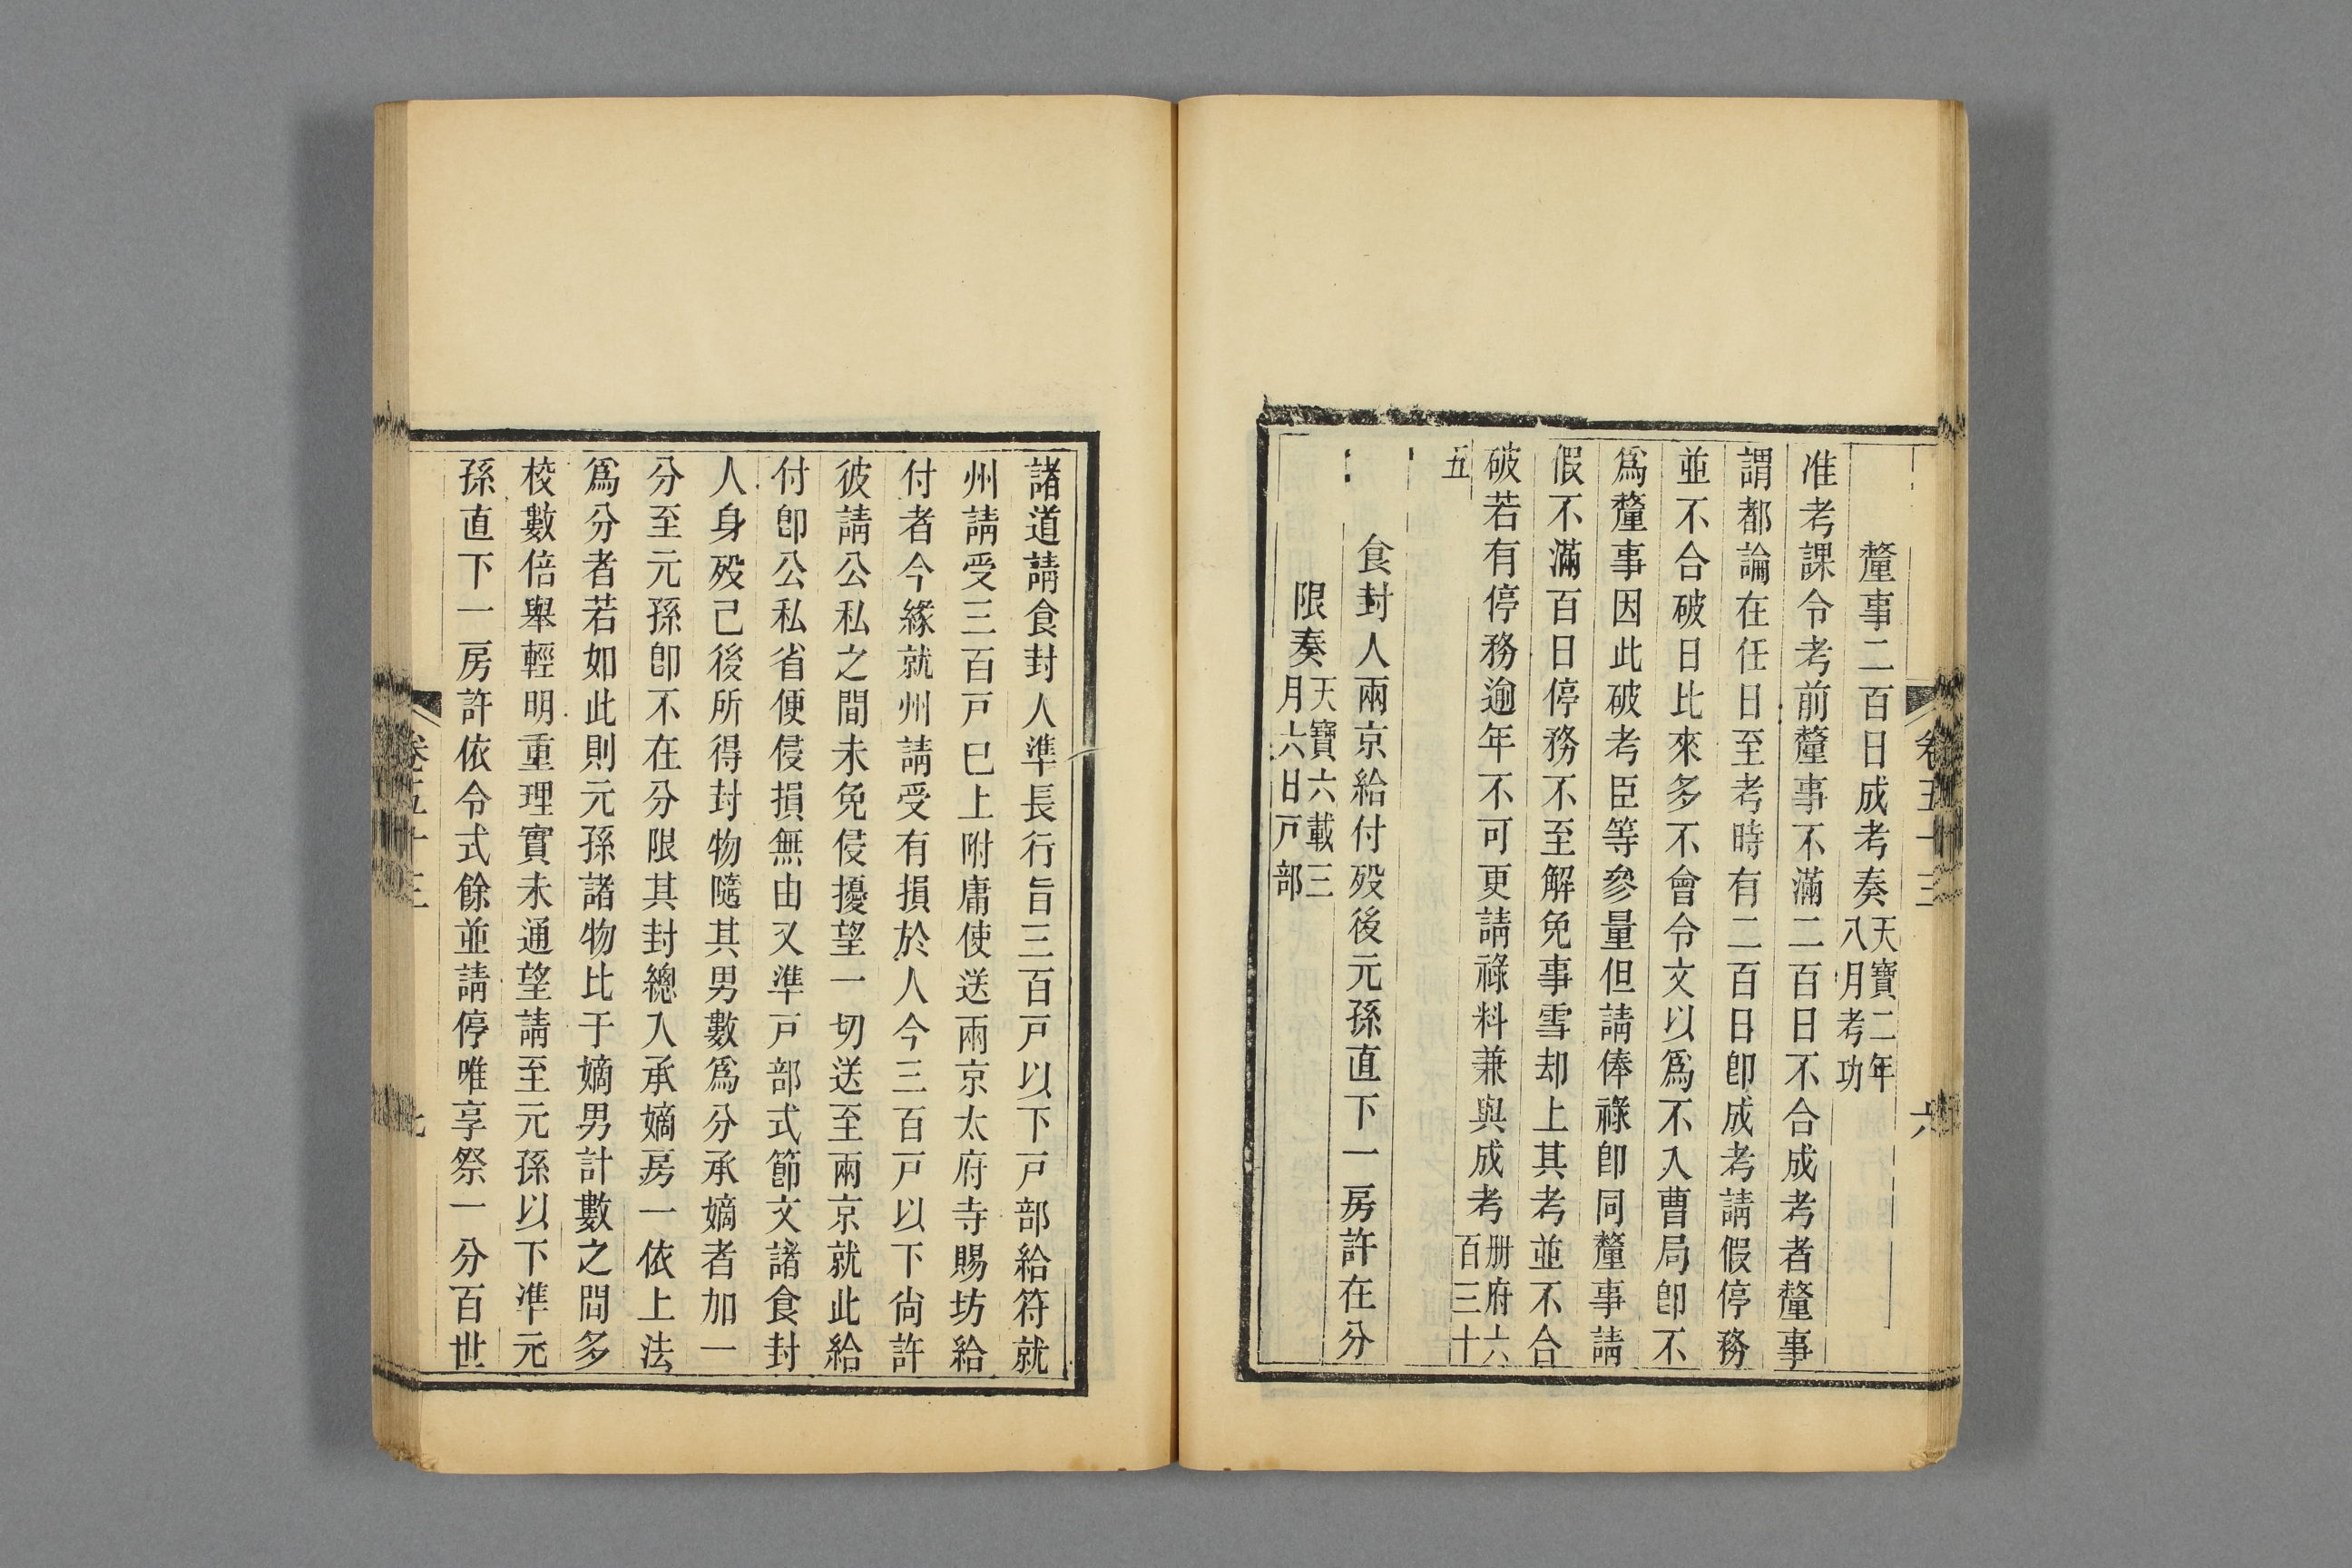 釐事二百日成考奏天寶二年八月考功
准考課令考前釐事不滿二百日不合成考者釐事
謂都論在任日至考時有二百日卽成考請假停務
並不合破日比來多不會令文以爲不入曹局卽不
爲釐事因此破考臣等參量但請俸祿卽同釐事請
假不滿百日停務不至解免事雪却上其考並不合
破若有停務逾年不可更請祿料兼與成考册府六百三十
五
食封人兩京給付歿後元孫直下一房許在分
限奏天寶六載三月六日戸部
卷五十三
六
諸道請食封人準長行旨三百戸以下戸部給符就
州請受三百戸已上附庸使送兩京太府寺賜坊給
付者今緣就州請受有損於人今三百戸以下尙許
彼請公私之間未免侵擾望一切送至兩京就此給
付卽公私省便侵損無由又準戸部式節文諸食封
人身歿已後所得封物隨其男數爲分承嫡者加一
分至元孫卽不在分限其封總入承嫡房一依上法
爲分者若如此則元孫諸物比于嫡男計數之間多
校數倍舉輕明重理實未通望請至元孫以下準元
孫直下一房許依令式餘並請停唯享祭一分百世
卷五十三
七